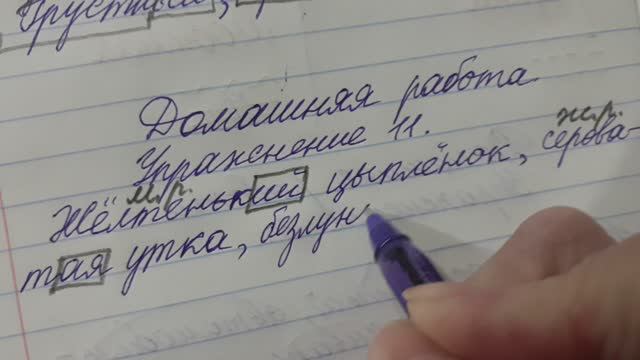 Грустный,
Домашняя работа
Упражнение 11.
м.р. ж.р.
Жёлтенький цыплёнок, серова-
тая утка, безлун